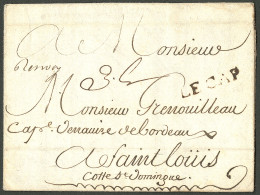 A Monsieur
LE CAP
Monsieur Grenouilleau
Cape. Verrauire de bordeau
A Saint Loüis
Cotte St Domingue.